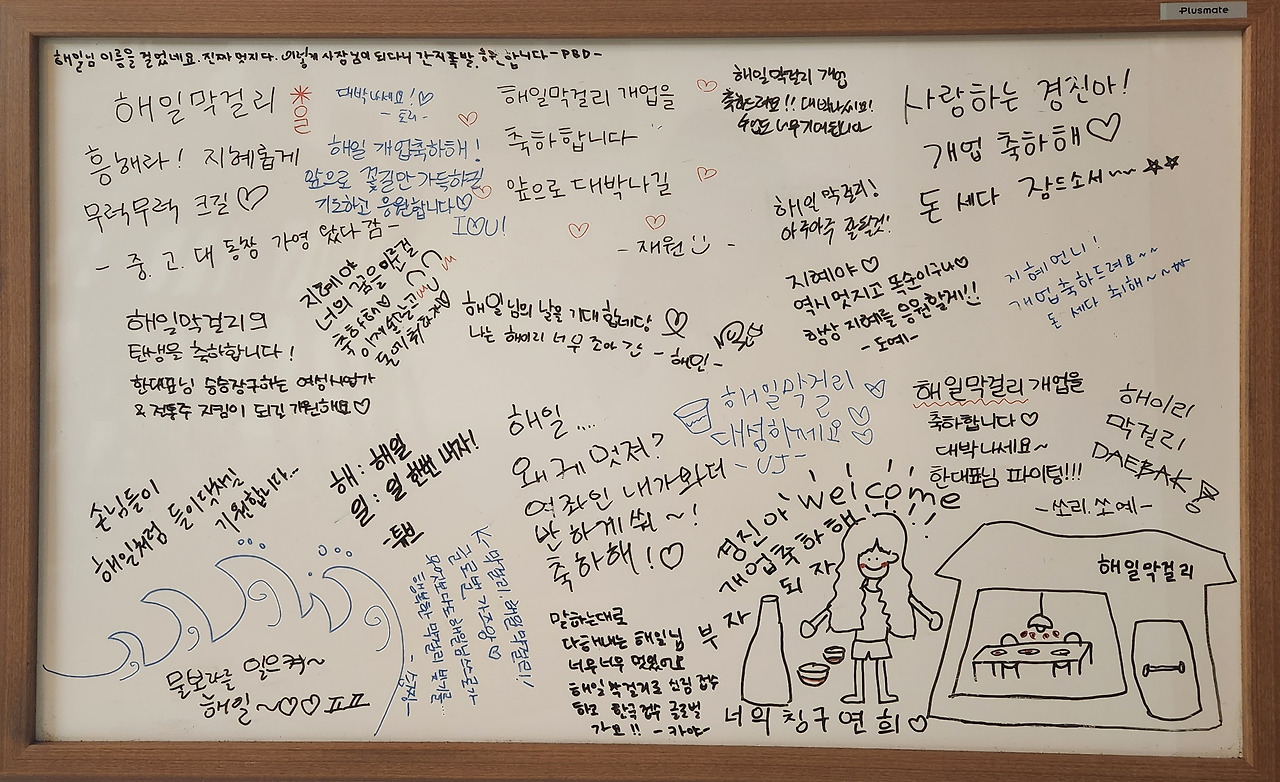 Plusmate
해일님 이름을 걸었네요. 진짜 멋지다. 이렇게 사장님이 되다니 간지폭발. 응원합니다 -PBD-
해일막걸리
흥해라! 지혜롭게
무럭무럭 크길♡
- 중. 고. 대 동창 가영 왔다 감 -
대박나세요!♡
- 도리 -
해일 개업축하해!
앞으로 꽃길만 가득하길
기도하고 응원합니다♡
I♡U!
해일막걸리 개업을
축하합니다
앞으로 대박나길
- 재원 -
해일막걸리 개업
축하드려요!! 대박나시요!
사랑하는 경진아!
개업 축하해♡
돈 세다 잠드소서~~☆☆
해일 막걸리!
아주아주 잘될것!
지혜야♡
너의 꿈을 이룬걸
축하해♡
해일막걸리의
탄생을 축하합니다!
한대표님 승승장구하는 여성사업가
& 전통주 지킴이 되길 기원해요♡
해일님의 날을 기대합네당
나는 해이리 너무 조아 간
- 해민 -
지혜야♡
역시 멋지고 똑순이구나♡
항상 지혜를 응원할게!!
- 도예 -
지혜언니!
개업축하드려요~~
돈 세다 취해~~
손님들이
해일처럼 들이닥치길
기원합니다...
해 : 해일
일 : 일 한번 내자!
해일....
왜케 멋져?
옆좌인 내가봐더
반하게쒀~!
축하해!♡
해일막걸리
대성하세요♡
- UJ -
해일막걸리 개업을
축하합니다♡
대박나세요~
한대표님 파이팅!!!
해이리
막걸리
DAEBAK
- 쏘리.쏘예 -
welcome
경진아
개업축하해!
부자 되자
너의 칭구 연희♡
해일막걸리
물보라를 일으켜~
해일~♡♡ㅍㅍ
말하는대로
다해내는 해일님
너무너무 멋있어요
해일 막걸리로 신림 접수
하고 한국접수 글로벌
가요!! - 카야 -